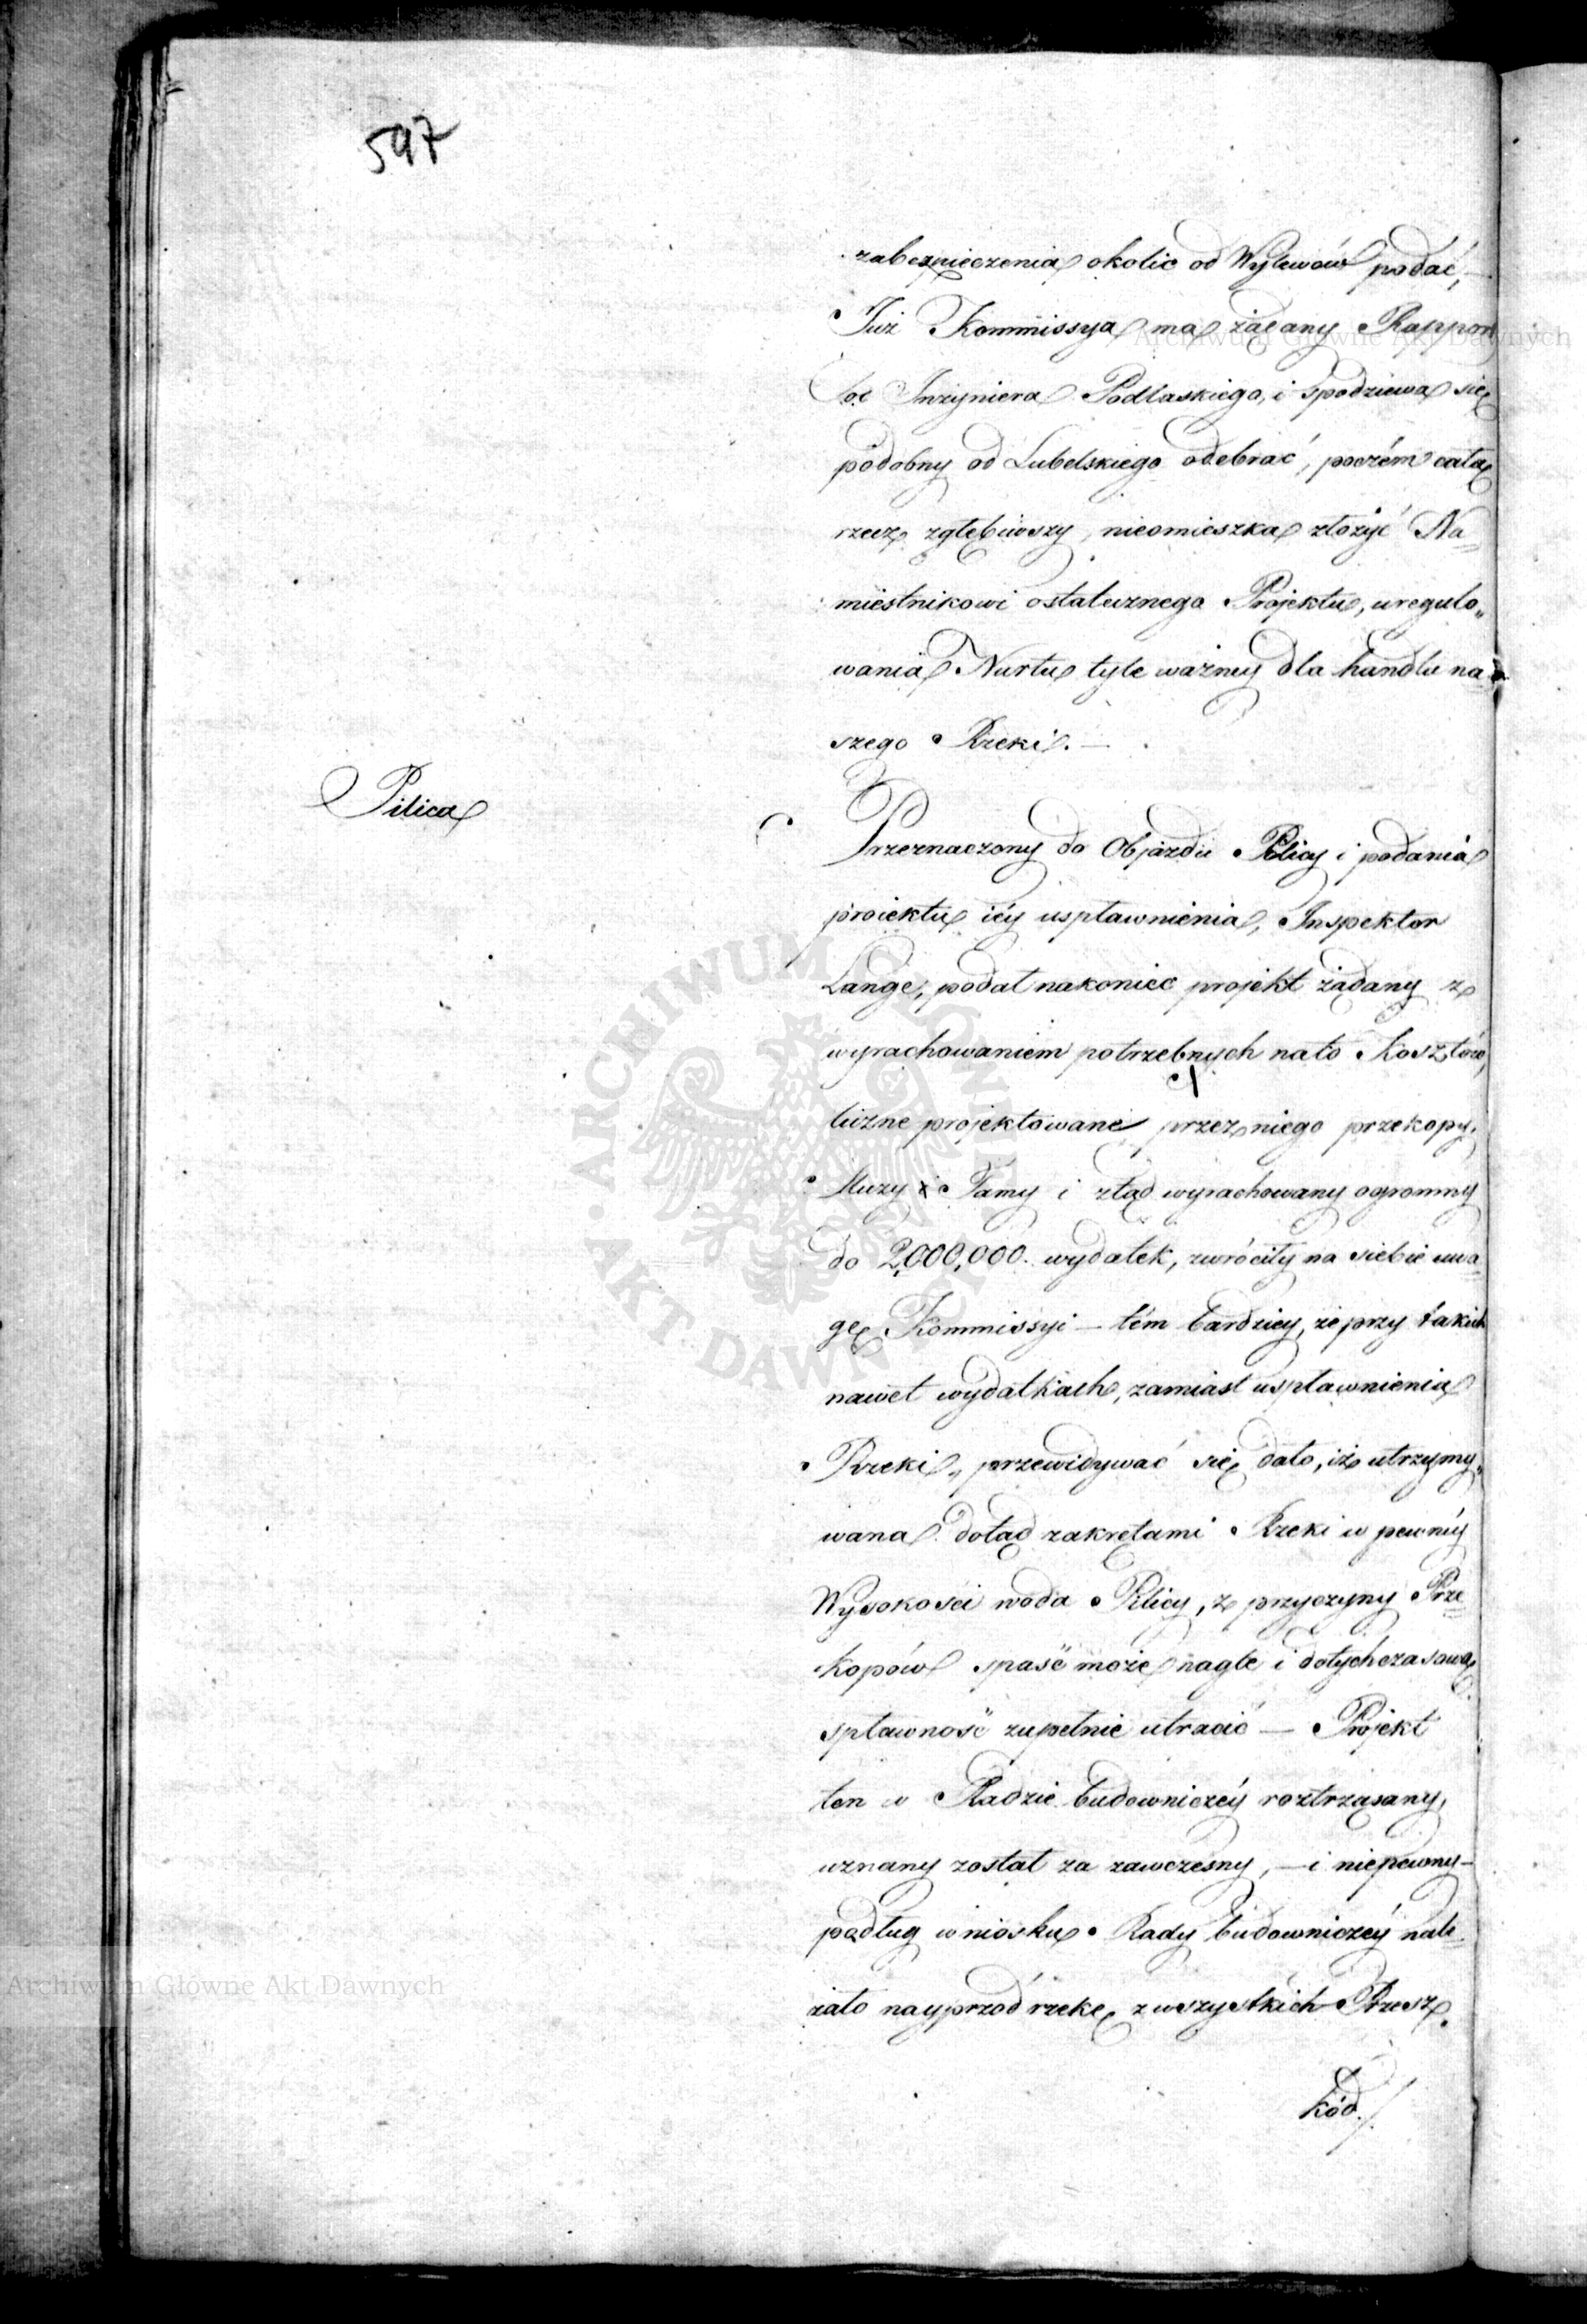 597
zabezpieczenia okolic od Wylewów podać, —
Już Kommissya ma żądany Rapport
od Inżyniera Podlaskiego, i spodziewa się
podobny od Lubelskiego odebrać, poczém całą
rzecz zgłębiwszy, nieomieszka złożyć Na=
miestnikowi ostatecznego Projektu, uregulo„
wania Nurtu tyle ważney dla handlu na
szego Rzeki. —
Pilica
Przeznaczony do Objazdu Pilicy i podania
proiektu iéy uspławnienia, Inspektor
Lange, podał nakoniec projekt żądany z
wyrachowaniem potrzebnych nato Kosztów,
liczne projektowane przez niego przekopy,
śluzy i Tamy i ztąd wyrachowany ogromny
do 2,000,000. wydatek, zwróciły na siebie uwa=
gę Kommissyi — tém bardziey, że przy takich
nawet wydatkach, zamiast uspławnienia
Rzeki, przewidywać się dało, iż utrzymy„
wana dotąd zakrętami Rzeki w pewnéy
Wysokości woda Pilicy, z przyczyny Prze=
kopów spaść może nagle i dotychczasową
spławność zupełnie utracić — Projekt
ten w Radzie budowniczéy roztrząsany,
uznany został za zawczesny, — i niepewny —
podług wniosku Rady budowniczéy nale=
żało nayprzód rzekę z wszystkich Przesz
kód.
Archiwum Główne Akt Dawnych
ARCHIWUM GŁÓWNE AKT DAWNYCH
Archiwum Główne Akt Dawnych